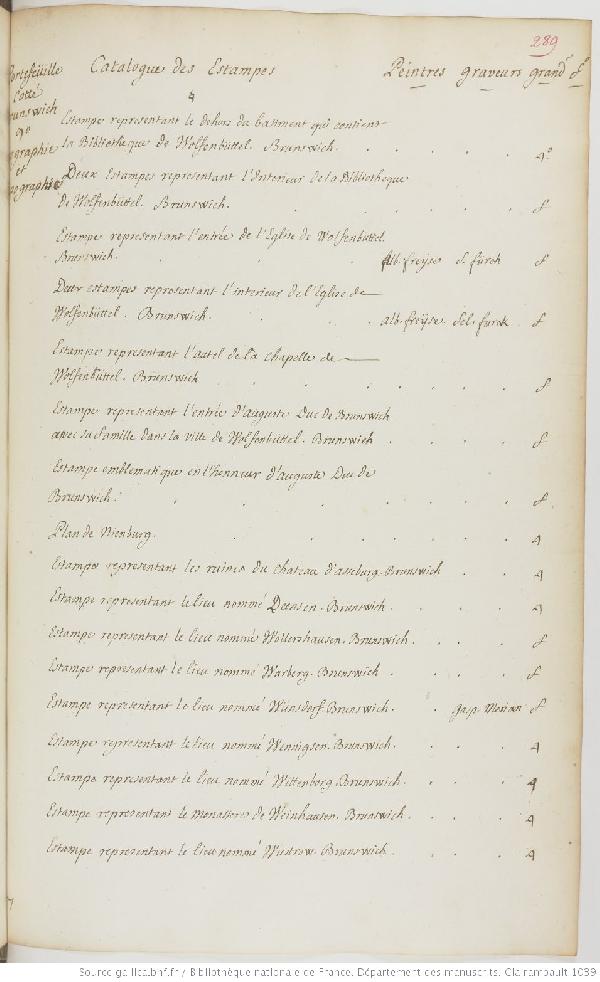 289
Portefeüille Catalogue des Estampes Peintres graveurs grandr f°
Cotté
Brunswich
4
Estampe representant le dehors du bastiment qui contient
la Bibliotheque de Wolfenbüttel. Brunswich. 4°
et
Deux Estampes representant l'Interieur de la Bibliotheque
de Wolfenbüttel. Brunswich. f
Estampe representant l'entrée de l'Eglise de Wolfenbüttel
Brunswich. Alb. freÿse S. fürck f
Deux estampes representant l'interieur de l'Eglise de
Wolfenbüttel. Brunswich. alb. freÿse Sel. furck. f
Estampe representant l'autel de la chapelle de
Wolfenbüttel. Brunswich f
Estampe representant l'entrée d'auguste Duc de Brunswich
avec sa famille dans la ville de Wolfenbuttel. Brunswich f
Estampe emblematique en l'honneur d'auguste Duc de
Brunswich. f
Plan de Nienburg. 4
Estampe representant les ruines du chateau d'asseburg. Brunswich 4
Estampe representant le lieu nommé Deensen. Brunswich. 4
Estampe representant le lieu nommé Wollershausen. Brunswich. f
Estampe representant le lieu nommé Warberg. Brunswich. f
Estampe representant le lieu nommé Wünsdorf. Brunswich. gasp. Merian f
Estampe representant le lieu nommé Wennigsen. Brunswich. 4
Estampe representant le lieu nommé Wittenborg. Brunswich. 4
Estampe representant le Monastere de Weinhausen. Brunswich. 4
Estampe representant le lieu nommé Wustrow. Brunswich. 4
Source gallica.bnf.fr / Bibliothèque nationale de France. Département des manuscrits. Clairambault 1039